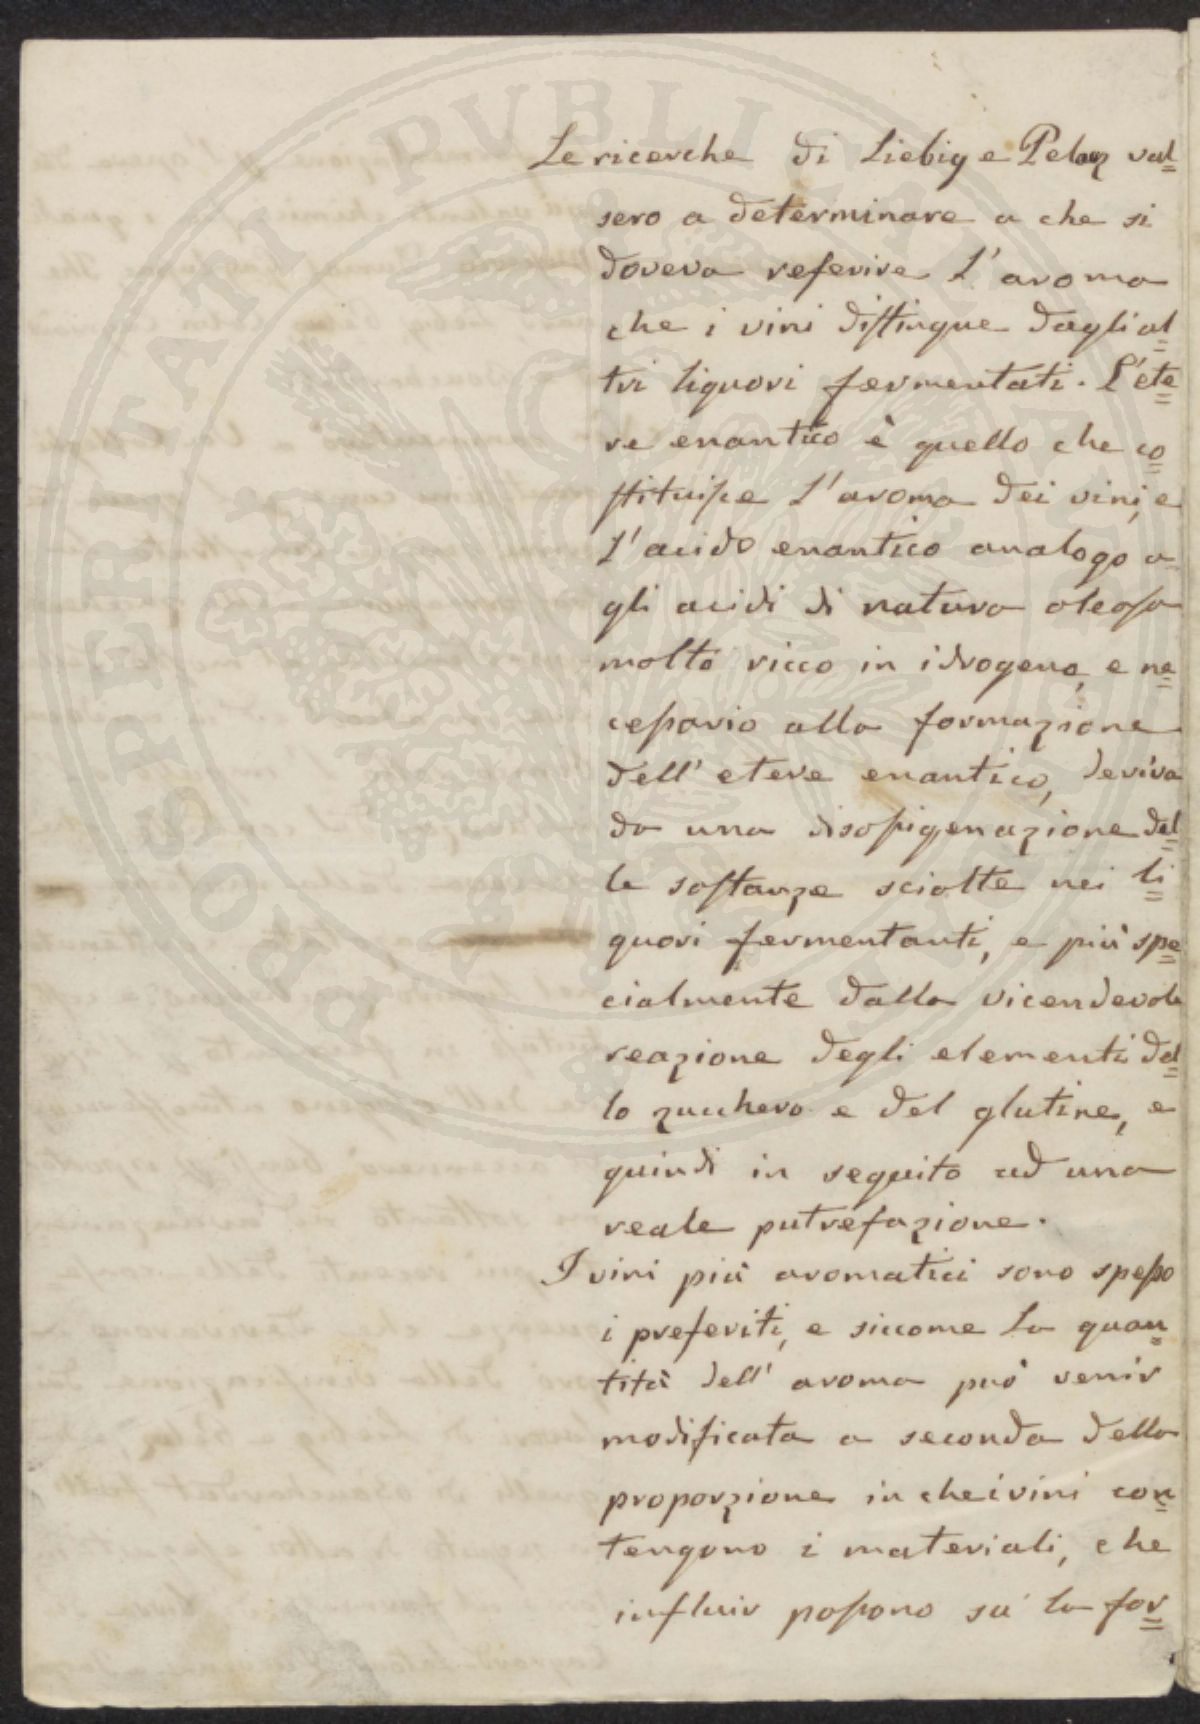 Le ricerche di Liebig e Pelouz val=
sero a determinare a che si
doveva referire l'aroma
che i vini distingue dagli al=
tri liquori fermentati. L'ete=
re enantico è quello che co=
stituisce l'aroma dei vini, e
l'acido enantico analogo a=
gli acidi di natura oleosa
molto ricco in idrogeno, e ne=
cessario alla formazione
dell'etere enantico, deriva
da una disossigenazione del=
le sostanze sciolte nei li=
quori fermentanti, e più spe=
cialmente dalla vicendevole
reazione degli elementi del=
lo zucchero e del glutine, e
quindi in seguito ad una
reale putrefazione.
I vini più aromatici sono spesso
i preferiti, e siccome la quan=
tità dell'aroma può venir
modificata a seconda della
proporzione in che i vini con=
tengono i materiali, che
influir possono su la for=
PROSPERITATI PUBLICAE AUGENDAE